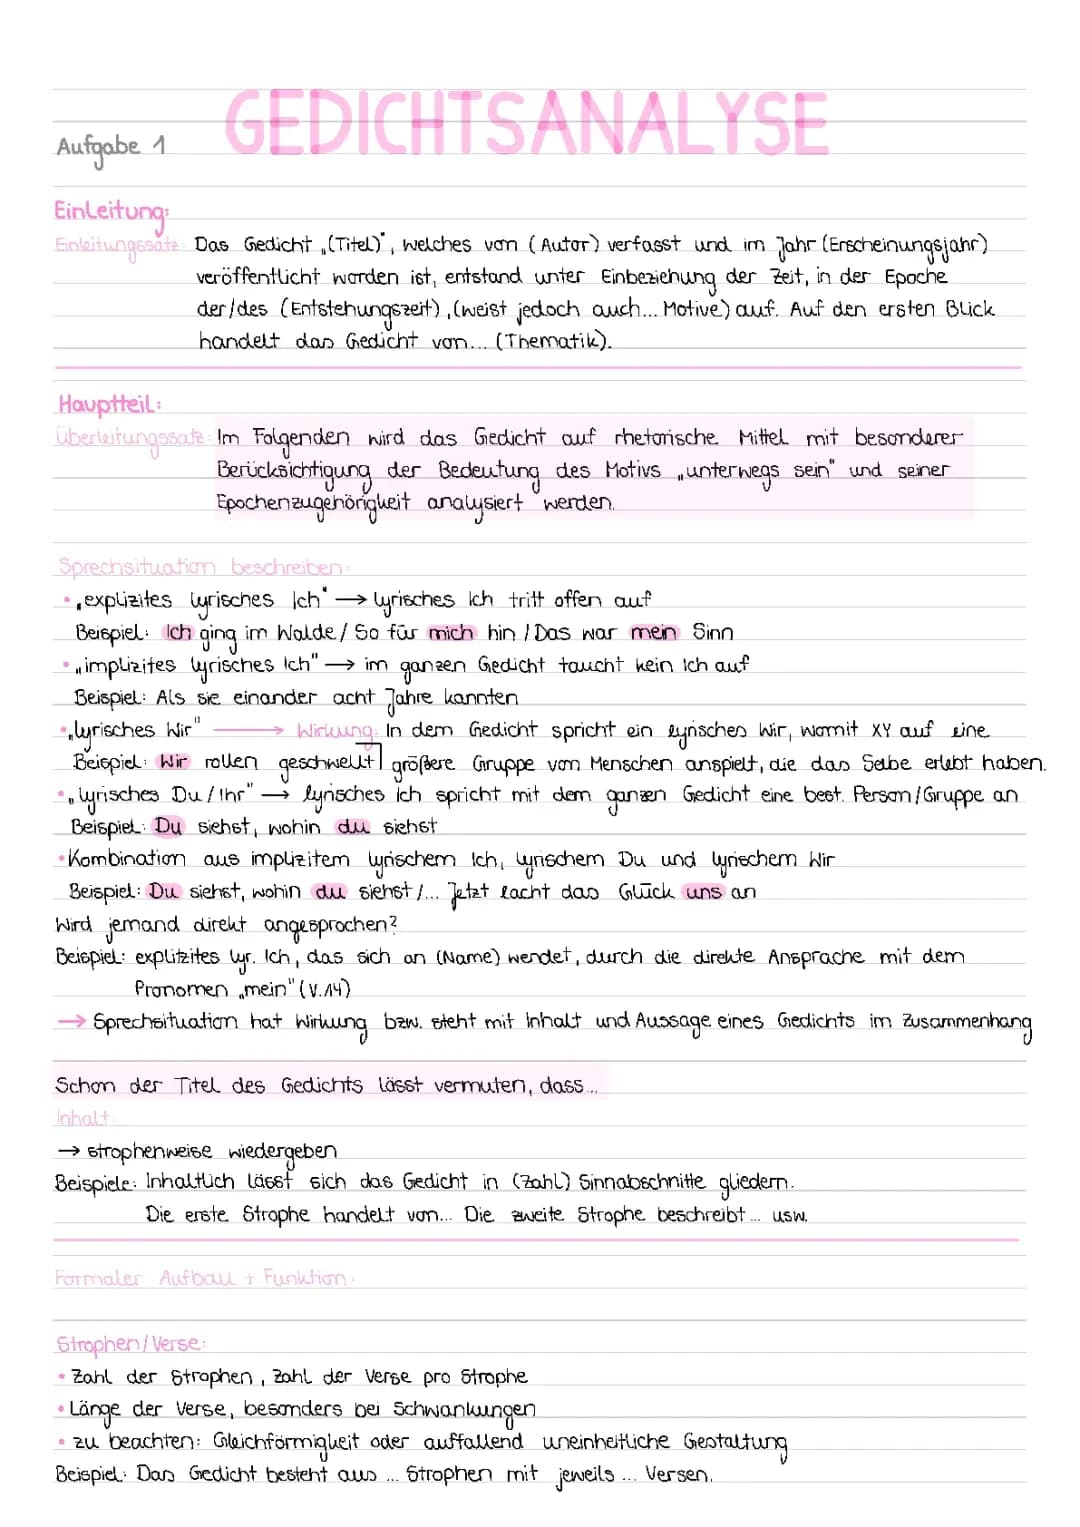 GEDICHTSANALYSE
Aufgabe 1
Einleitung:
Einleitungssatz: Das Gedicht „(Titel)", welches von (Autor) verfasst und im Jahr (Erscheinungsjahr)
veröffentlicht worden ist, entstand unter Einbeziehung der Zeit, in der Epoche
der/des (Entstehungszeit), (weist jedoch auch... Motive) auf. Auf den ersten Blick
handelt das Gedicht von... (Thematik).
Hauptteil:
Überleitungssatz: Im Folgenden wird das Gedicht auf rhetorische Mittel mit besonderer
Berücksichtigung der Bedeutung des Motivs „unterwegs sein" und seiner
Epochenzugehörigkeit analysiert werden.
Sprechsituation beschreiben:
• „explizites lyrisches Ich" → lyrisches Ich tritt offen auf
Beispiel: Ich ging im Walde / So für mich hin / Das war mein Sinn
• „implizites lyrisches Ich" → im ganzen Gedicht taucht kein Ich auf
Beispiel: Als sie einander acht Jahre kannten
• „lyrisches Wir" → Wirkung: In dem Gedicht spricht ein lyrisches Wir, womit XY auf eine
Beispiel: Wir rollen geschwellt größere Gruppe von Menschen anspielt, die das Selbe erlebt haben.
• „lyrisches Du / Ihr" → lyrisches ich spricht mit dem ganzen Gedicht eine best. Person/Gruppe an
Beispiel: Du siehst, wohin du siehst
• Kombination aus implizitem lyrischem Ich, lyrischem Du und lyrischem Wir
Beispiel: Du siehst, wohin du siehst /... Jetzt lacht das Glück uns an
Wird jemand direkt angesprochen?
Beispiel: explitzites lyr. Ich, das sich an (Name) wendet, durch die direkte Ansprache mit dem
Pronomen „mein" (V.14)
→ Sprechsituation hat Wirkung bzw. steht mit Inhalt und Aussage eines Gedichts im Zusammenhang
Schon der Titel des Gedichts lässt vermuten, dass...
Inhalt:
→ strophenweise wiedergeben
Beispiele: Inhaltlich lässt sich das Gedicht in (Zahl) Sinnabschnitte gliedern.
Die erste Strophe handelt von... Die zweite Strophe beschreibt... usw.
Formaler Aufbau + Funktion:
Strophen/Verse:
• Zahl der Strophen, Zahl der Verse pro Strophe
• Länge der Verse, besonders bei Schwankungen
• zu beachten: Gleichförmigkeit oder auffallend uneinheitliche Gestaltung
Beispiel: Das Gedicht besteht aus ... Strophen mit jeweils ... Versen.